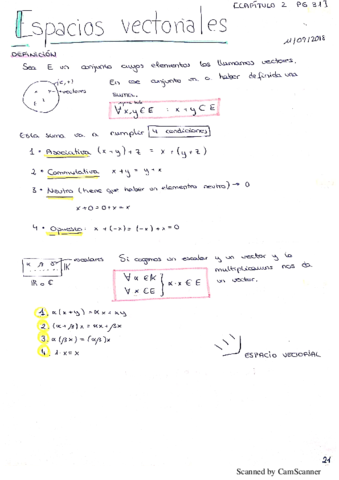 [CAPÍTULO 2 PG 313]
Espacios vectoriales
11/07/2018
DEFINICIÓN
Sea E un conjunto cuyos elementos los llamamos vectores.
(E, +)
vectores
En ese conjunto va a haber definida una
suma.
∀x,y ∈ E : x + y ∈ E
Esta suma va a cumplir 4 condiciones
1 • Asociativa (x+y)+z = x+(y+z)
2 • Conmutativa x+y = y+x
3 • Neutro (tiene que haber un elemento neutro) → 0
x+0=0+x=x
4 • Opuesto: x+(-x)=(-x)+x=0
escalares
Si cogemos un escalar y un vector y lo
multiplicamos nos da
un vector.
∀α ∈ K
∀x ∈ E
α·x ∈ E
1. α(x+y)=αx+αy
2. (α+β)x=αx+βx
3. α(βx)=(αβ)x
4. 1·x=x
ESPACIO VECTORIAL
21
Scanned by CamScanner